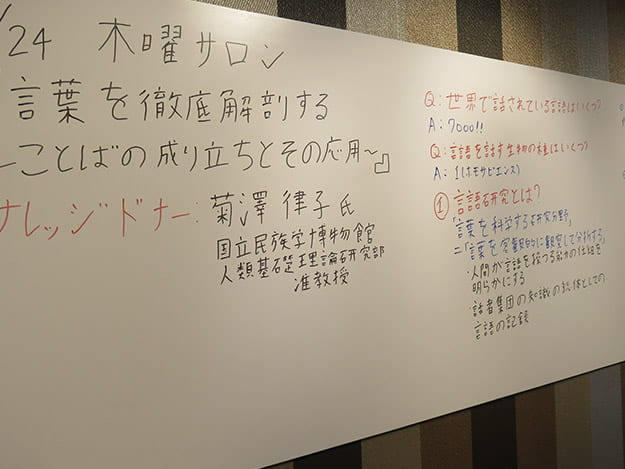 /24 木曜サロン
言葉を徹底解剖する
~ことばの成り立ちとその応用~』
ナレッジドナー:菊澤 律子氏
国立民族学博物館
人類基礎理論研究部
准教授
Q:世界で話されている言語はいくつ?
A:7000!!
Q:言語を話す生物の種はいくつ?
A:1(ホモサピエンス)
①言語研究とは?
「言葉を科学する研究分野」
=「言葉を客観的に観察して分析する」
・人間が言語を操つる能力の仕組を
明らかにする
・話者集団の知識の総体としての
言語の記録